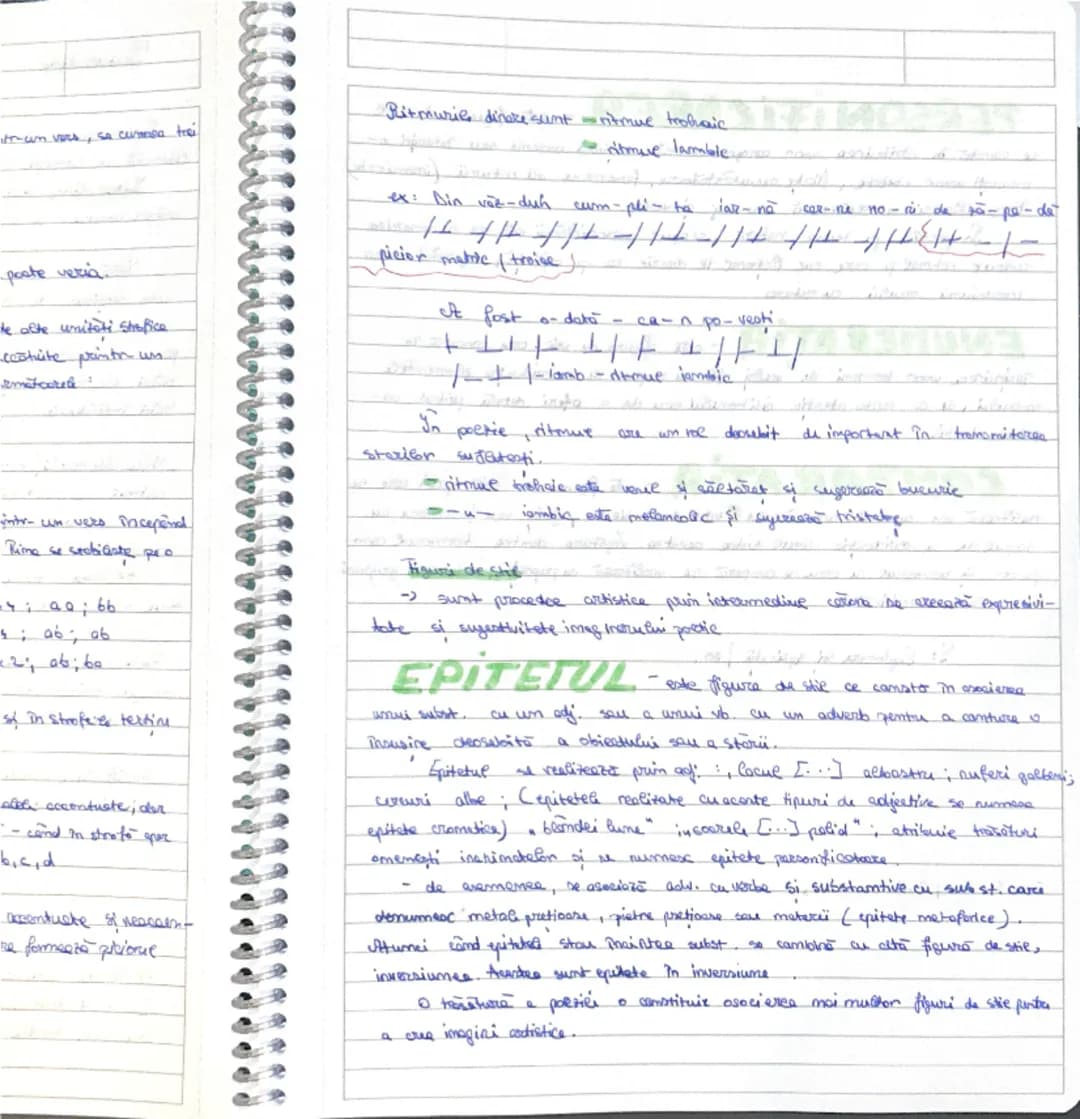 tr-un vers, se
poate varia.
te alte unități strofice
printr-un
:
într-un vers începând
Rima se stabilește pe o
; aa; bb
; ab; ab
; ab; ba
și în strofele
accentuate; dar
- când în strofă apar
b, c, d
accentuate și neaccen-
se formează
Ritmurile binare sunt - ritmul trohaic
- ritmul iambic
ex: Din văz-duh cum-pli-ta iar-nă cer-ne no-ri de ză-pa-dă
picior metric (troheu)
A fost o-dată - ca-n po-vești
- iamb - ritmul iambic
În poezie, ritmul are un rol deosebit de important în transmiterea
stărilor sufletești.
- ritmul trohaic este vioi și săltăreț și sugerează bucurie
-u- iambic este melancolic și sugerează tristețe
Figuri de stil
-> sunt procedee artistice prin intermediul cărora se creează expresivi-
tate și sugestivitate imaginarului poetic
EPITETUL - este figura de stil ce constă în asocierea
unui subst. cu un adj. sau a unui vb. cu un adverb pentru a contura o
însușire deosebită a obiectului sau a stării.
Epitetul se realizează prin adj: „lacul [...] albastru; nuferi galbeni;
cercuri albe; (epitetele realizate cu aceste tipuri de adjective se numesc
epitete cromatice) „blândei lune" [...] ; atribuie trăsături
omenești inanimatelor și se numesc epitete personificatoare.
- de asemenea, se asociază adv. cu verbe și substantive cu subst. care
denumesc metale prețioase, pietre prețioase sau materii (epitete metaforice).
Atunci când epitetele stau înaintea subst. se combină cu altă figură de stil,
inversiunea. Acestea sunt epitete în inversiune
O trăsătură a poeziei o constituie asocierea mai multor figuri de stil pentru
a crea imagini artistice.